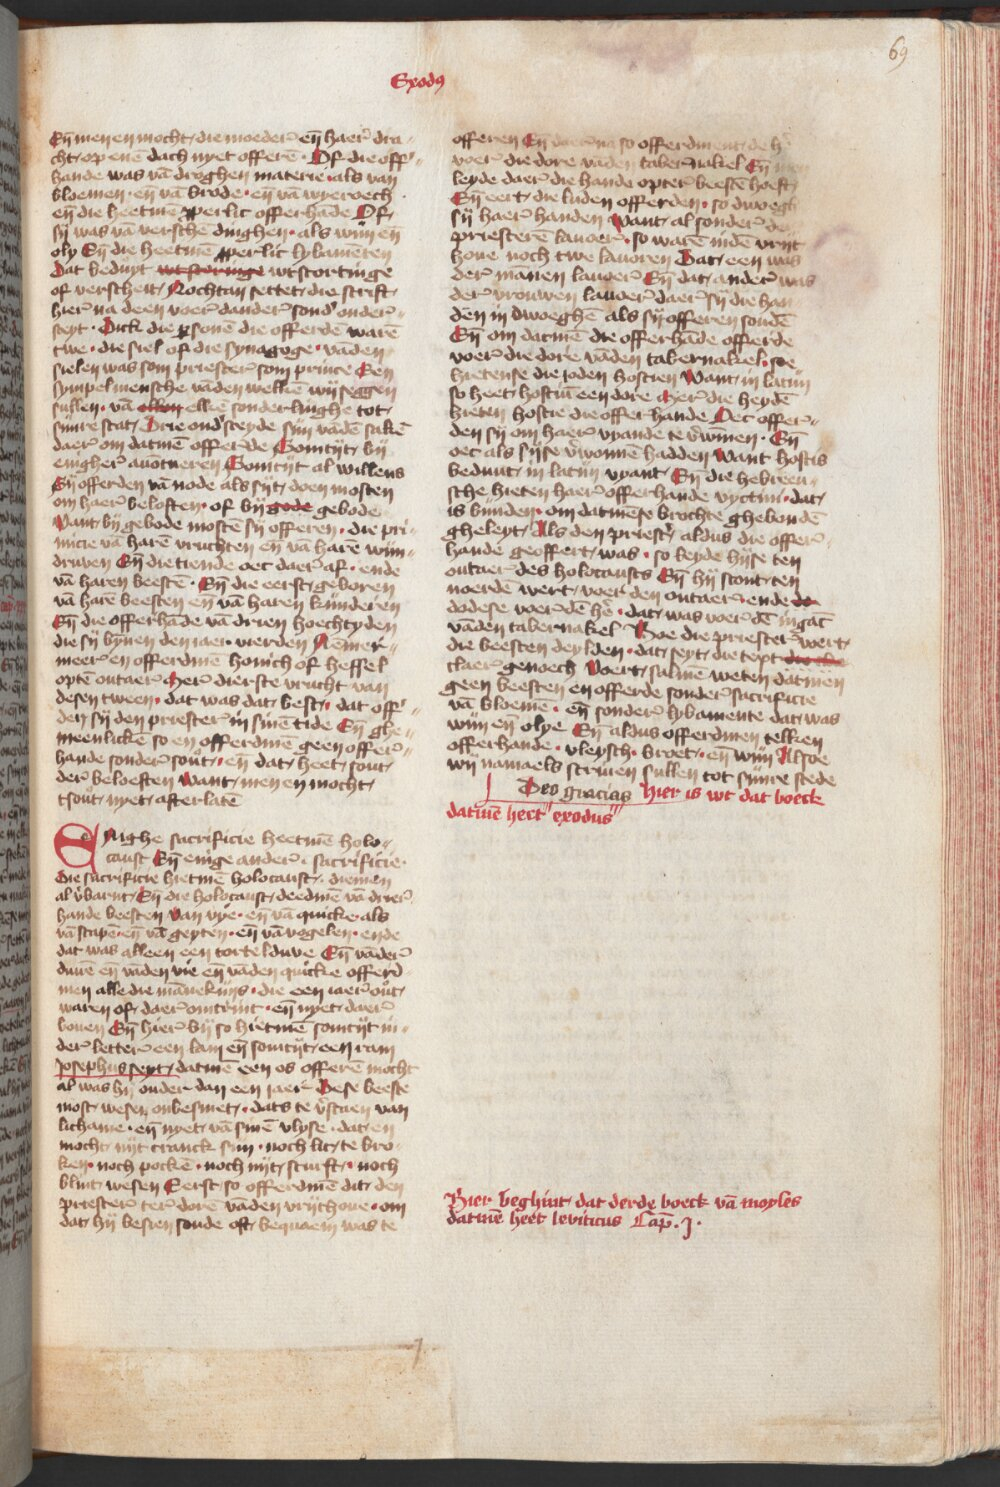 69
Exodꝰ
Eñ men en mocht die moeder eñ haer dra-
cht op enē dach nyet offerē · Of die off-
hande was vā droghen materie als van
bloemen · eñ vā brode · eñ vā wyeroech
eñ die heetmē pperlic offerhāde Of
sy was vā verschē dinghen · als wijn eñ
oly Eñ die heetmē pperlic lybamētten
Dat beduyt wtstoringe wtstortinge
of verscheit Nochtan settet die scrift
hier na deen voer dander sond onder-
seyt · Dick die psonē die offerdē warē
twe · die siel of die synagoge · vāden
sielen was som priester som prince Een
sympel mensche vāden welkē wij seggen
sullen · vā ellken elkē sonderlinghe tot
sijnre stat Drie ondsceyde sijn vādē sakē
daer om datmē offerde Somtijt by
enigher auōtueren Somtijt al willens
Eñ offerden vā node als sijt doen mosten
om haer beloften · of bij gode gebode
Want bij gebode mostē sij offeren · die pri-
micie vā harē vruchten eñ vā harē wijn-
druven Eñ die tiende oec daer af · ende
vā haren beestē · Eñ die eerst geboren
vā harē beesten eñ vā haren kijnderen
Eñ die offerhāde vā drien hoechtyden
die sij bynen den iaer vierden Nēmer-
meer en offerdmē honich of heffsel
optē outaer Mer dierste vrucht van
desen tween · dat was dat best · dat off-
den sij den priester in sinē tide Eñ ghe-
meenlickē so en offerdmē geen offer-
hande sonder sout · eñ dat heet sout
der beloeften Want men en mocht
tsout nyet after latē
Enighe sacrificie heetmē holo-
caust Eñ enige ander sacrificie ·
Die sacrificie hietmē holocaust diemen
al v̄barnt Eñ die holocaust deedmē vā drier
hande beesten Van vye · eñ vā quicke als
vā scape · eñ vā geyten · eñ vā vogelen · ende
dat was alleen een tortelduve Eñ vāder
duvē eñ vāden vie eñ vāden quicke offerd-
men alle die mānekijns · die een iaer out
waren of daer omtrint · eñ nyet daer
boven Eñ hier bij so hietmē somtijt in
der letter een lam eñ somtijt een ram
Josephus seyt datmē een os offerē mocht
al was hij onder dan een iaer Dese beeste
most wesen onbesmet · dats te v̄staen van
lichame · eñ nyet vā sinē vlyse · dat en
mocht nijt cranck sijn · noch lic te bro-
ken · noch pockē · noch nijt scurft · noch
blint wesen Eerst so offerdmē dit den
priester ter dorē vāden vrijthove · om
dat hij besien soude oft bequaem was te
offeren Eñ daer na so offerdmēt de
voer die dore vādē tabernakel Eñ
leyde daer die hande opter beestē hoeft
Eñ eert die luden offerden · so dwoegh
sij haer handen Want al sonder der
priesterē lavoer · so warē indē vrijt
hove noch twe lavoren Dat een was
der mānen lavoer Eñ dat ander was
der vrouwen lavoer daer sij die han-
den in dwoeghē als sij offeren soudē
Eñ om datmē die offerhāde offerde
voer die dore vāden tabernakel · soe
hietense die joden hostien Want in latijn
so heet hostiū een dore Mer die heydē
hieten hostie die offerhande Oec offer-
den sij om haer vyande te v̄winnen · Eñ
oec als sijse v̄wonnē hadden Want hostis
beduut in latijn vyant Eñ die hebreeu-
sche hieten haer offerhande vyctim · dat
is bijnden · om datmēse brochte ghebondē
gheleyt Als den priester aldus die offer-
hande geoffert was · so leyde hijse ten
outaer des holocausts Eñ hij stont ten
noerdē wert voer den outaer · ende
dodese voer dē he · dat was voer dē ingāc
vāden tabernakel Hoe die priester wert
die beesten deylden · dat seyt die text
claer genoech Voert salmē weten datmen
geen beesten en offerde sonder sacrificie
vā bloemē · eñ sonder lybamente dat was
wijn eñ olye Eñ aldus offerdmen telken
offerhande · vleysch · broet · eñ wijn Alsoe
wij namaels scriven sullen tot sijnre stede
Deo gracias Hier is wt dat boeck
datmē heet exodus
Hier beghint dat derde boeck vā moyses
datmē heet leviticus Cap̄ · J ·